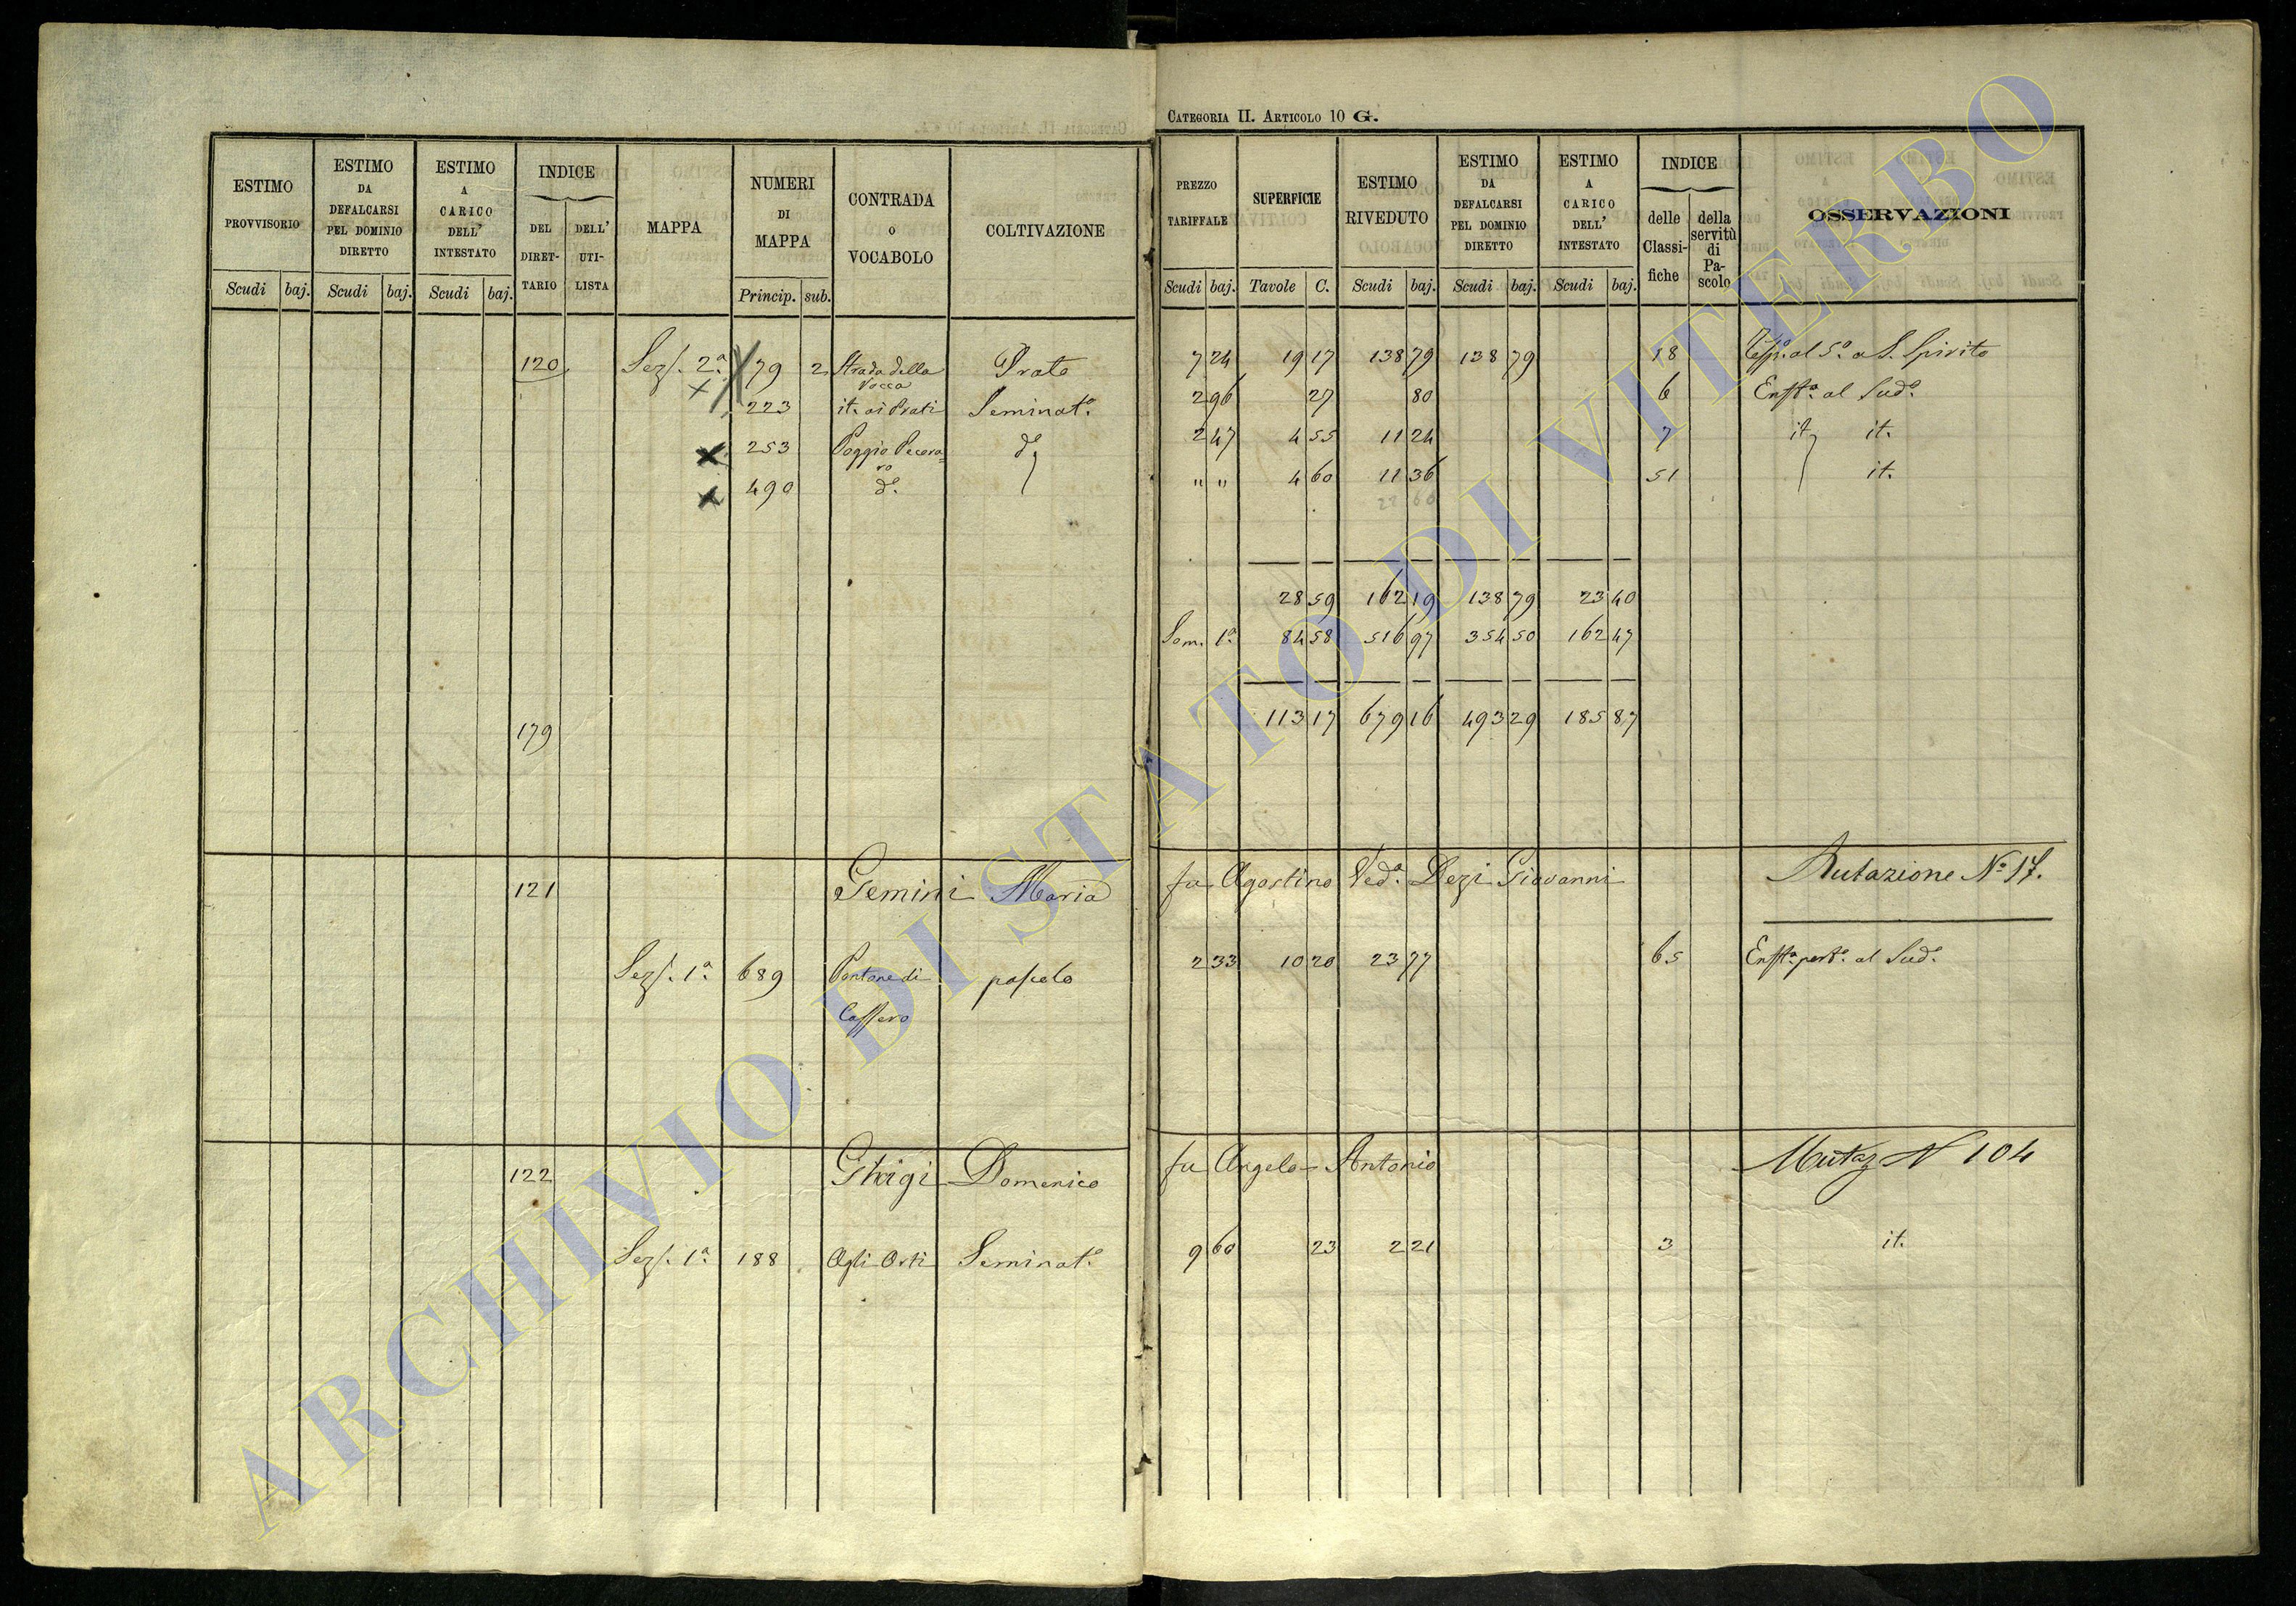 CATEGORIA II. ARTICOLO 10 G.
ESTIMO PROVVISORIO Scudi baj.
ESTIMO DA DEFALCARSI PEL DOMINIO DIRETTO Scudi baj.
ESTIMO A CARICO DELL' INTESTATO Scudi baj.
INDICE DEL DIRET-TARIO DELL' UTI-LISTA
MAPPA
NUMERI DI MAPPA Princip. sub.
CONTRADA O VOCABOLO
COLTIVAZIONE
PREZZO TARIFFALE Scudi baj.
SUPERFICIE Tavole C.
ESTIMO RIVEDUTO Scudi baj.
ESTIMO DA DEFALCARSI PEL DOMINIO DIRETTO Scudi baj.
ESTIMO A CARICO DELL' INTESTATO Scudi baj.
INDICE delle Classi-fiche della servitù di Pa-scolo
OSSERVAZIONI
120 Sez. 2ª 79 2 Strada della Rocca Prato 7 24 19 17 138 79 138 79 18 al S. Spirito
223 it. ai Prati Seminat.o 2 96 27 80 6 Enfta. al Sud.o
253 Poggio Pecora-ro d.o 2 47 4 55 11 24 7 it. it.
490 d.o " " 4 60 11 36 51 it.
22 60
28 59 162 19 138 79 23 40
Som. 1ª 84 58 516 97 354 50 162 47
179 113 17 679 16 493 29 185 87
121 Gemini Maria fu Agostino Ved.a Dezi Giovanni Mutazione No 17.
Sez. 1ª 689 Pontone di Cassero pascolo 2 33 10 20 23 77 65 Enfta. perp.a al Sud.o
122 Ghigi Domenico fu Angelo=Antonio Mutaz N 104
Sez. 1ª 188 Agli Orti Seminat.o 9 60 23 2 21 3 it.
ARCHIVIO DI STATO DI VITERBO